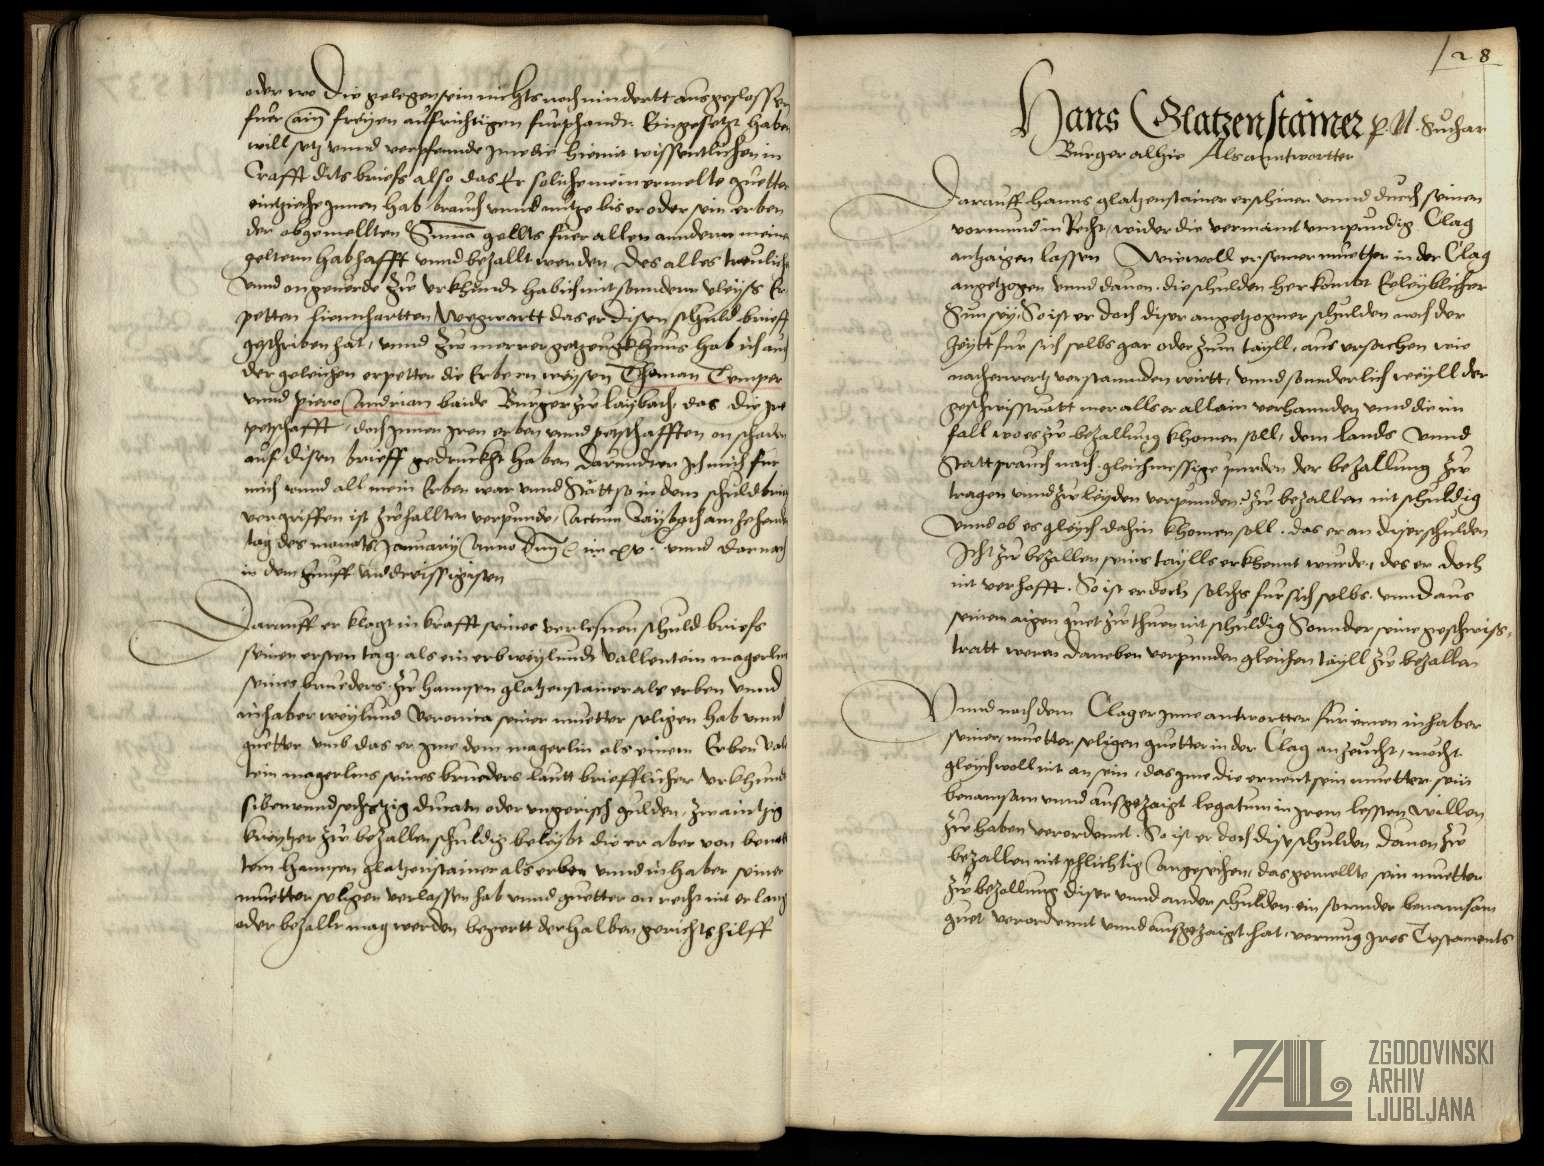 oder wo die gelegen sein nichts noch mindertt ausgeslossen
fur ain freyen aufrichtigen furphandt. Eingesetzt haben
will setz unnd verpfennde Ime die hiemit wissentlichen in
Crafft dits briefs also das Er soliche mein ermelte guetter
einziehe Innen hab brauch unnd nutze bis er oder sein erben
der obgemellten Summa gellts fuer allen anndern meinen
geltern habhafft unnd bezallt werden Des alles treulich
unnd on geverde Zu urkhundt hab ich mit sonnderm vleyss Er
petten Lienhartten Wegwartt das er disen schuld brieff
geschriben hat, unnd Zu merrer getzeugkhnus hab ich auch
der geleichen erpetten die Erbern weysen Thoman Temper
unnd piero Andrian baide Burger Zu laybach das die Ire
petschafft, doch Innen Iren erben unnd petschafften on schaden
auf disen brieff gedruckht haben darunder Ich mich fur
mich unnd all mein Erben war unnd Statt so in dem schuldbrief
vergriffen ist Zuhallten verpinde, Actum Laybach am
tag des monats January Anno unnd darnach
in dem funff und dreissigisten
Darauff er klagt in krafft seines verlesnen schuld briefs
seinen ersten tag, als ein erb weylundt Vallentein magerlin
seines brueders, Zu hannsen glatzenstainer als erben unnd
inhaber weylund Veronica seiner muetter seligen hab unnd
guetter umb das er Ime dem magerlin als einem Erben Val
tein magerlins seines brueders lautt briefflicher urkhund
sibenunndsechtzig ducatn oder ungerisch gulden, Zwaintzig
kreytzer Zu bezallen schuldig beleybt die er aber von benen
tem hannsen glatzenstainer als erben unnd inhaber seiner
muetter seligen verlassen hab unnd guetter on recht nit erlang
oder bezallt mag werden begertt derhalben gerichts hilff
128
Hans Glatzenstainer p. M. Suchar
Burger alhie Als anntwortter
Darauff hanns glatzenstainer erschinen unnd durch seinen
vormund in Recht, wider die vermaint unnpundig Clag
antzaigen lassen Wiewoll er seiner muetter in der Clag
angetzogen unnd davon die schulden herkombt Eeleyblicher
Sun sey, So ist er doch diser angetzogner schulden noch der
Zeytt fur sich selbs gar oder zum tayll, aus ursachen wie
nachenvertz verstannden wirtt, unnd sonnderlich weyll der
geschwisstratt mer alls er allain verhannden unnd die im
fall wo es Zu bezallung khomen soll, dem lands unnd
Stattprauch nach, gleichmessige purden der bezallung Zu
tragen unnd Zu leyden verpunden, Zu bezallen nit schuldig
Unnd ob es gleych dahin khomen soll, das er an diser schulden
Icht Zu bezallen seins taylls erkhennt wurde, des er doch
nit verhofft, So ist er doch solchs fur sich selbs unnd aus
seinem aigen guet Zu thuen nit schuldig Sonnder seine geschwiss,,
tratt weren daneben verpunden gleichen tayll Zu bezallen
Unnd nach dem Clager Inne antwortter fur einen inhaber
seiner muetter seligen guetter in der Clag anzeucht, mocht
gleychwoll nit an sein, das Ime die ernent sein muetter sein
benamsam unnd aufgezaigt legatum in Irem lessten willen
Zu haben verordennt, So ist er doch dise schulden davon Zu
bezallen nit phlichtig Angesehen, das gemellte sein muetter
Zu bezallung diser unnd ander schulden ein sonnder benamsam
guet verordennt unnd aufgezaigt hat, vermug Ires Testaments
ZAL
ZGODOVINSKI
ARHIV
LJUBLJANA